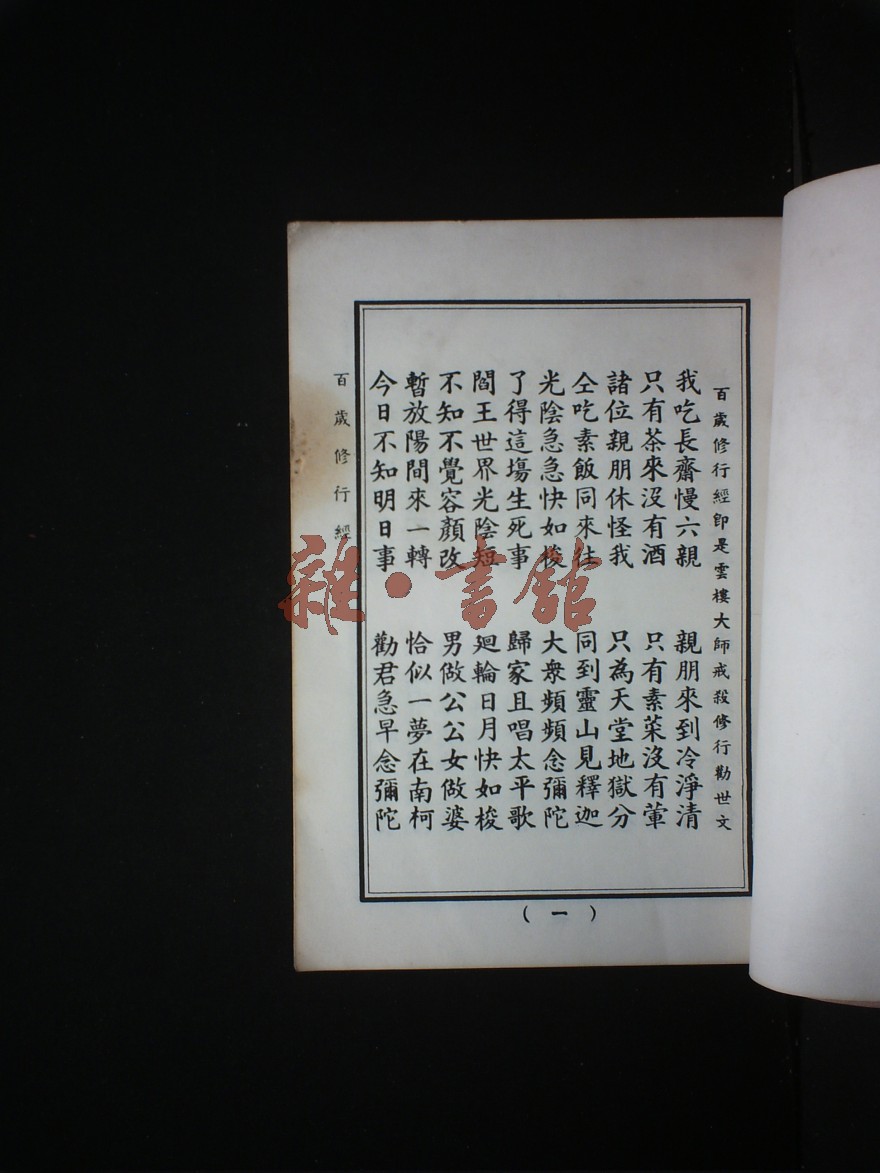 百歲修行經即是雲樓大師戒殺修行勸世文
我吃長齋慢六親　親朋來到冷淨清
只有茶來沒有酒　只有素菜沒有葷
諸位親朋休怪我　只為天堂地獄分
仝吃素飯同來往　同到靈山見釋迦
光陰急急快如梭　大衆頻頻念彌陀
了得這塲生死事　歸家且唱太平歌
閻王世界光陰短　廻輪日月快如梭
不知不覺容顏改　男做公公女做婆
暫放陽間來一轉　恰似一夢在南柯
今日不知明日事　勸君急早念彌陀
百歲修行經
（一）
雜·書館